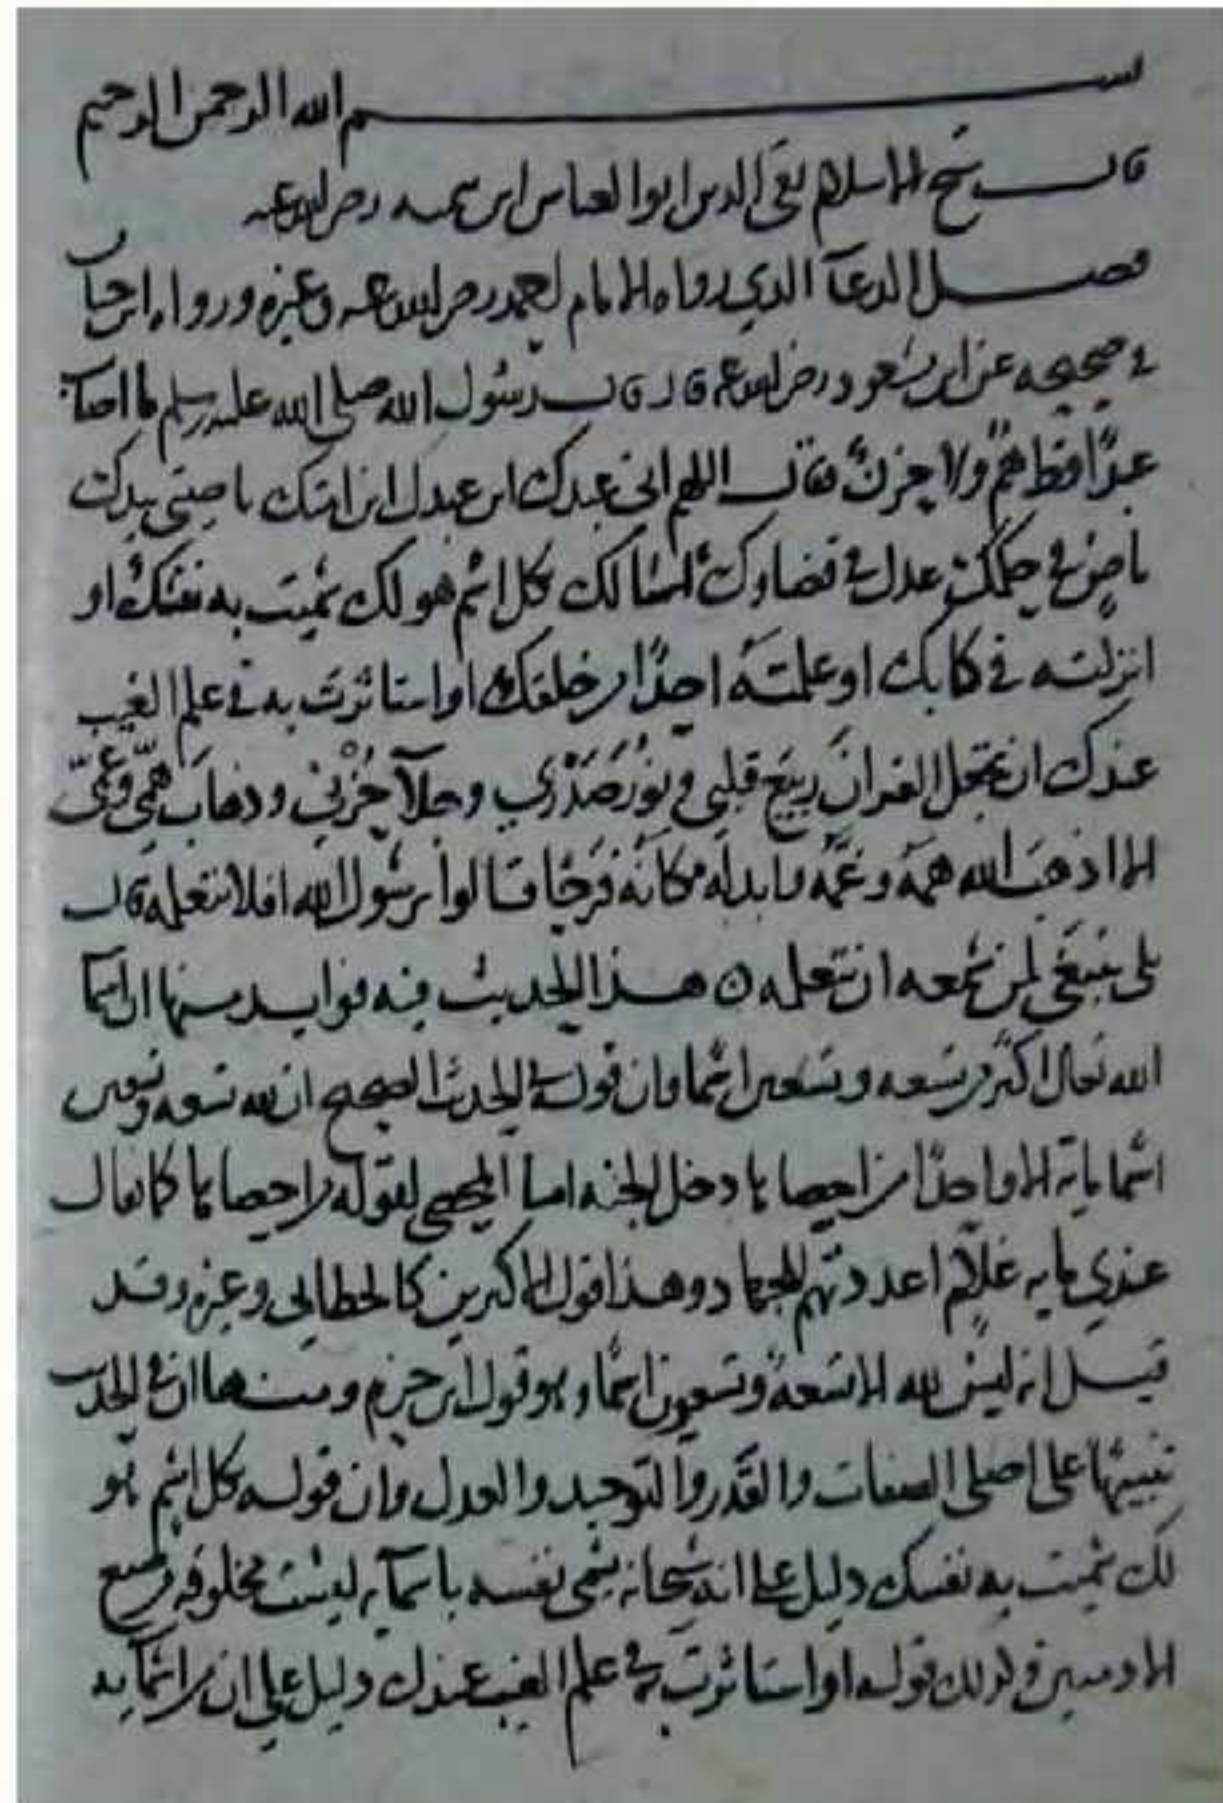 بسم الله الرحمن الرحيم
قال شيخ الاسلام تقى الدين ابو العباس ابن تيميه رضى الله عنه
فصل الدعآ الذي رواه الامام احمد رضى الله عنه وغيره ورواه ابن حبان
في صحيحه عن ابن مسعود رضى الله عنه قال قال رسول الله صلى الله عليه وسلم ما اصاب
عبدًا قط همٌ ولا حزنٌ فقال اللهم انى عبدك ابن عبدك ابن امتك ناصيتى بيدك
ماضٍ في حكمك عدل في قضاوك اسالك بكل اسم هو لك سميت به نفسك او
انزلته في كتابك او علمته احدًا من خلقك او استاثرت به في علم الغيب
عندك ان تجعل القران ربيع قلبي ونور صَدْري وجلآ حُزْني وذهاب همّي وغمّى
الا اذهب الله همه وغمّه وابدله مكانه فرحًا قالوا يرسول الله افلا نتعلمه قال
بلى ينبغي لمن سمعه ان يتعلمه ٥ هذا الحديث فيه فوايد منها ان اسما
الله تعالى اكثر من تسعه وتسعين اسما وان قوله في الحديث الصحيح ان لله تسعه وتسعين
اسما ماية الا واحدًا من احصاها دخل الجنه اسا المحصى لقوله من احصاها كما يقال
عندي مايه غلامٍ اعددتهم للجهاد وهذا قول الاكثرين كالخطابي وغيره وقد
قيل انه ليس لله الا تسعةٌ وتسعون اسمًا وهو قول ابن حزم ومنها ان في الحديث
تنبيهًا على اصلى الصفات والقدر والتوحيد والعدل وان قوله بكل اسم هو
لك سميت به نفسك دليل على انه سبحانه يسمى نفسه باسمآيه ليست مخلوقه من صنع
الادميين وكذلك قوله او استاثرت به في علم الغيب عندك دليل على ان من اسمآيه